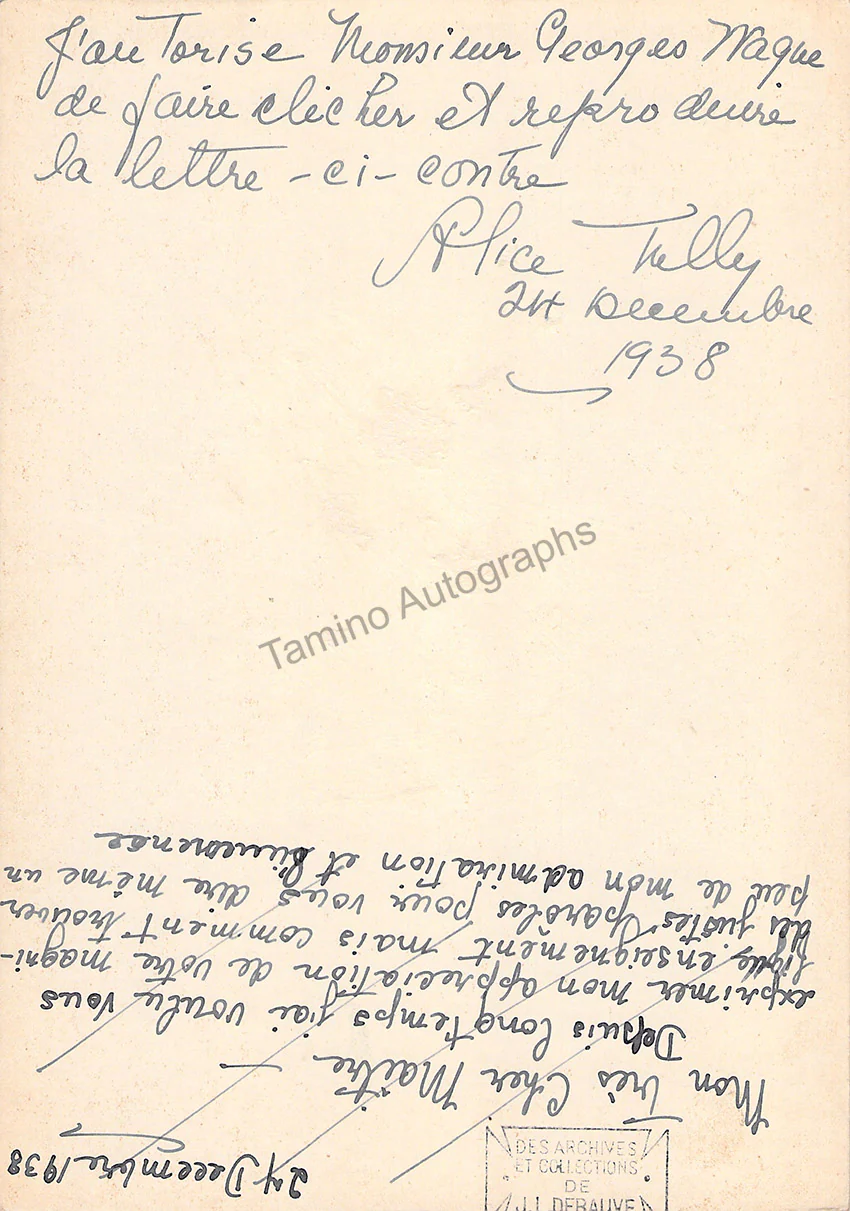 J'autorise Monsieur Georges Wague
de faire clicher et reproduire
la lettre-ci-contre
Alice Tully
24 Decembre
1938
Tamino Autographs
24 Decembre 1938
Mon Très Cher Maître
Depuis longtemps j'ai voulu vous
exprimer mon appreciation de votre magni-
fique enseignement mais comment trouver
des justes paroles pour vous dire même un
peu de mon admiration et
DES ARCHIVES
ET COLLECTIONS
DE
J.L. DEBAUVE